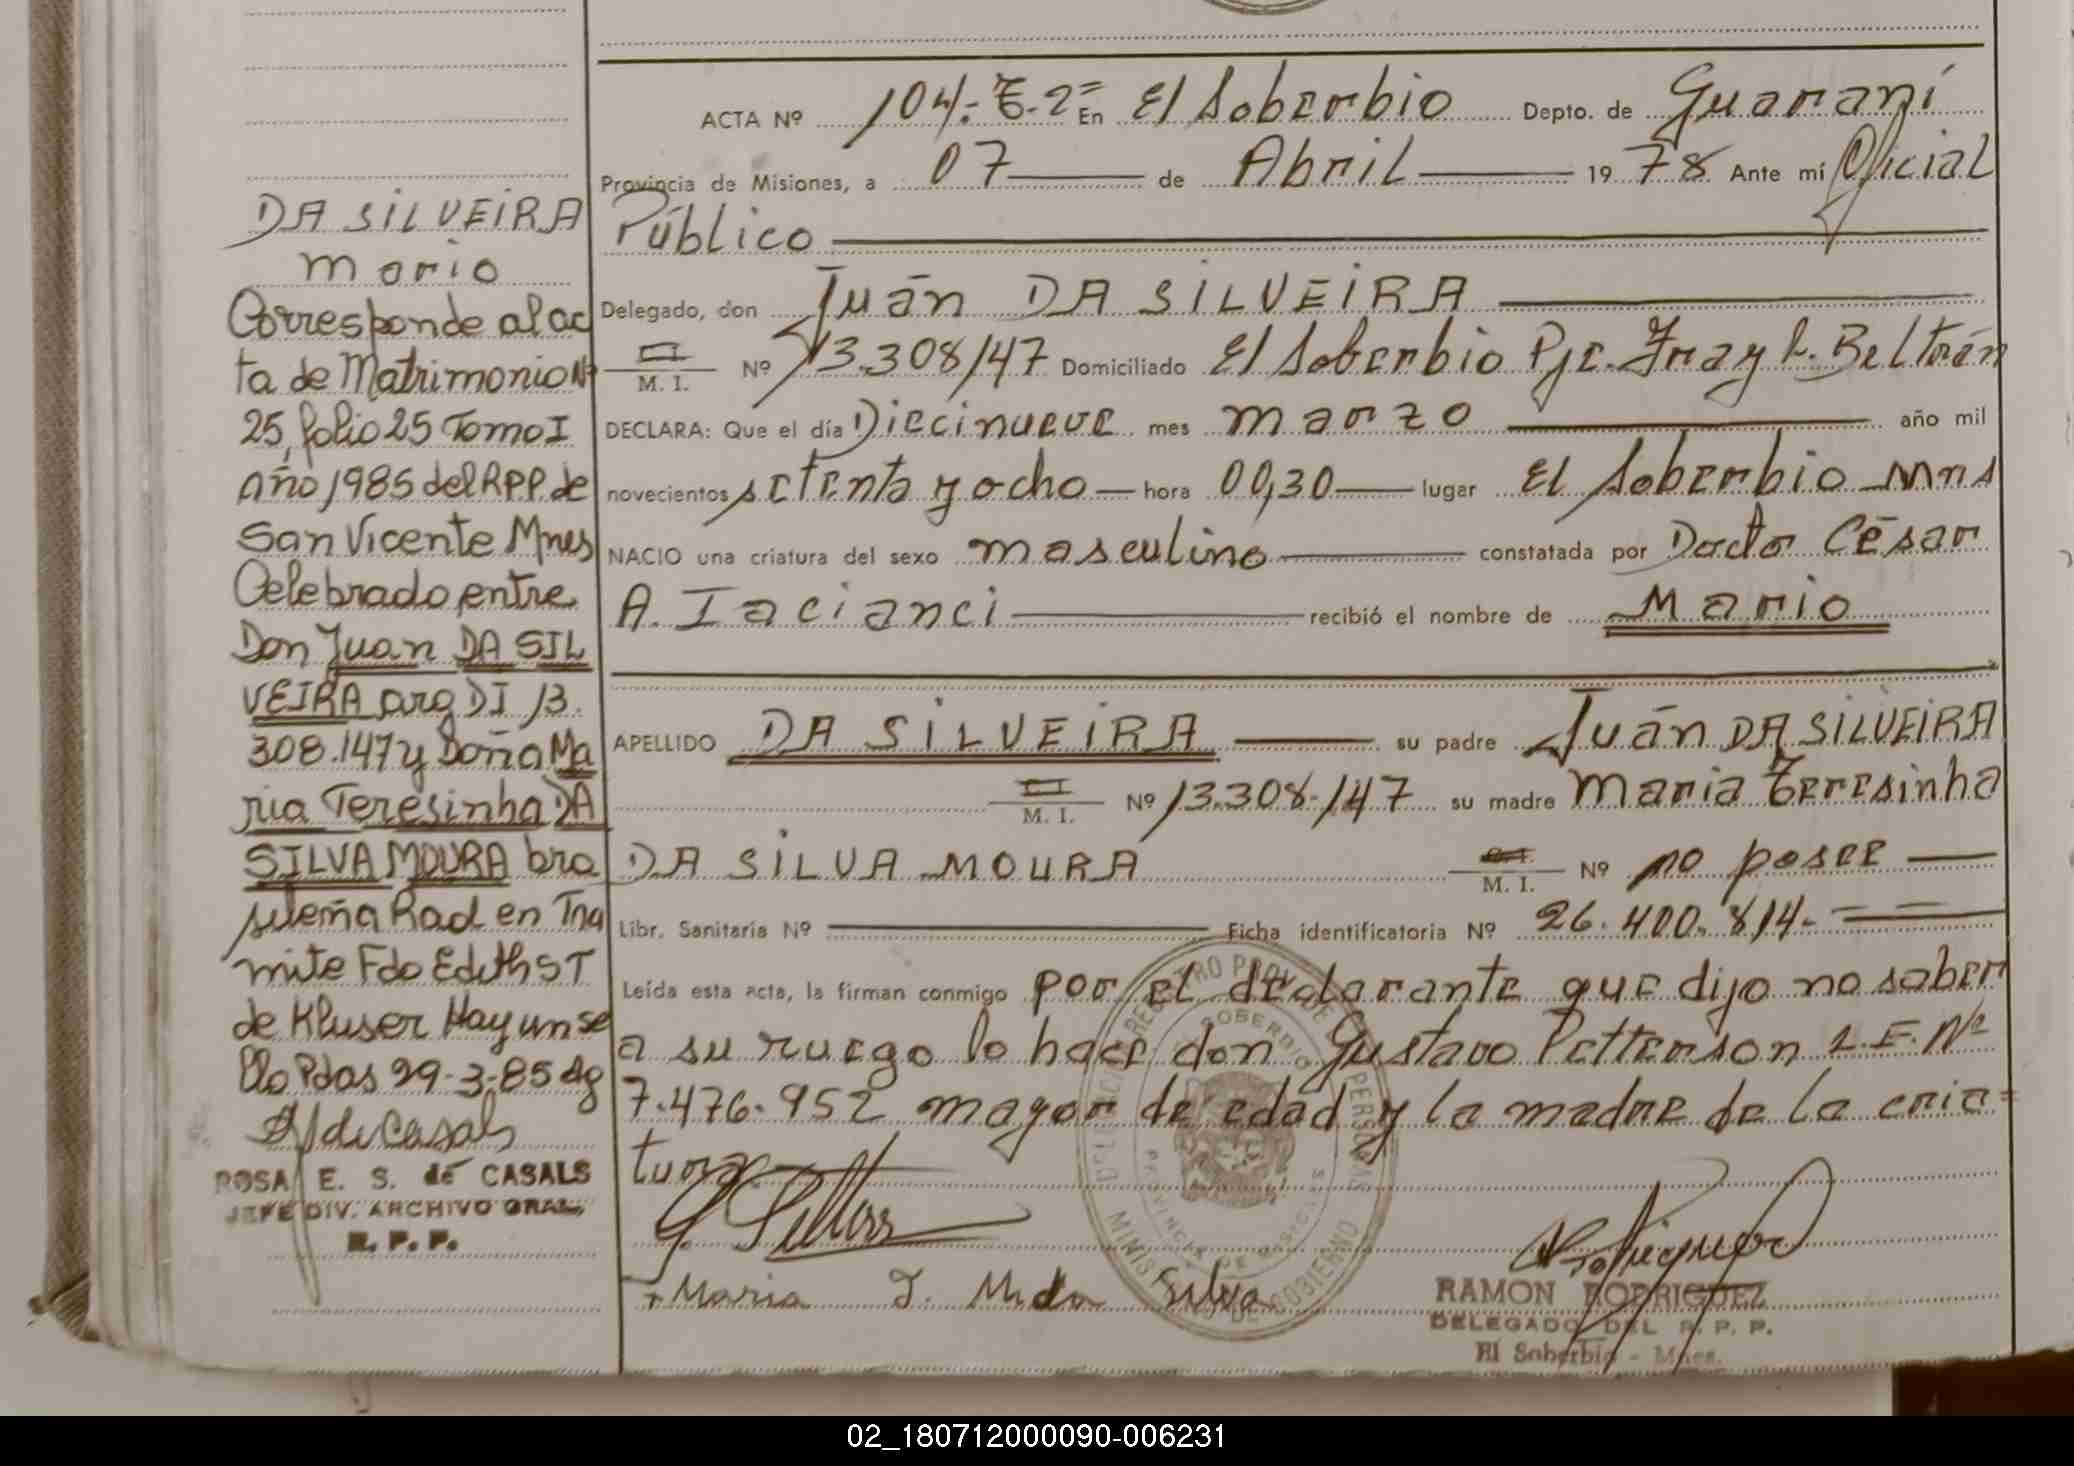 DA SILVEIRA
Mario
Corresponde al ac
ta de Matrimonio Nº
25, folio 25 Tomo I
año 1985 del RPP. de
San Vicente Mnes
Celebrado entre
Don Juan DA SIL
VEIRA arg DI 13.
308.147 y Doña Ma
ria Teresinha DA
SILVA MOURA bra
sileña Rad en Tra
mite Fdo Edith S T
de Kluser Hay un se
llo Pdas 29-3-85
de Casals
ROSA E. S. de CASALS
JEFE DIV. ARCHIVO GRAL.
R. P. P.
ACTA Nº 104.- T-2º En El Soberbio Depto. de Guaraní
Provincia de Misiones, a 07 de Abril 1978 Ante mí Oficial
Público
Delegado, don Juán DA SILVEIRA
M. I. Nº 13.308.147 Domiciliado El Soberbio Pje. Fray L. Beltrán
DECLARA: Que el día Diecinueve mes marzo año mil
novecientos setenta y ocho hora 00,30 lugar El Soberbio Mns
NACIO una criatura del sexo masculino constatada por Doctor César
A. Iacianci recibió el nombre de Mario
APELLIDO DA SILVEIRA su padre Juán DA SILVEIRA
M. I. Nº 13.308.147 su madre Maria Teresinha
DA SILVA MOURA M. I. Nº no posee
Libr. Sanitaria Nº Ficha identificatoria Nº 26.400.814.-
Leída esta acta, la firman conmigo por el declarante que dijo no saber
a su ruego lo hace don Gustavo Petterson L.E. Nº
7.476.952 mayor de edad y la madre de la cria=
tura
Maria T. M. da Silva
REGISTRO PROV. DE PERSONAS
EL SOBERBIO
PROVINCIA DE MISIONES
MINISTERIO DE GOBIERNO
RAMON RODRIGUEZ
DELEGADO DEL R. P. P.
El Soberbio - Mnes.
02_180712000090-006231